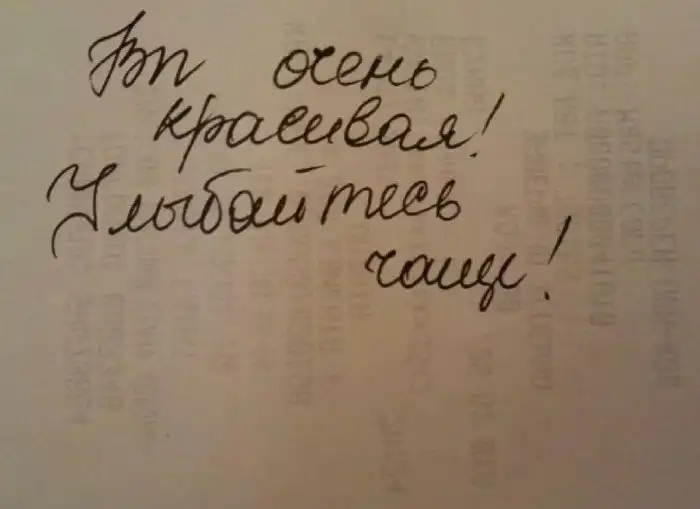 Вы очень
красивая!
Улыбайтесь
чаще!